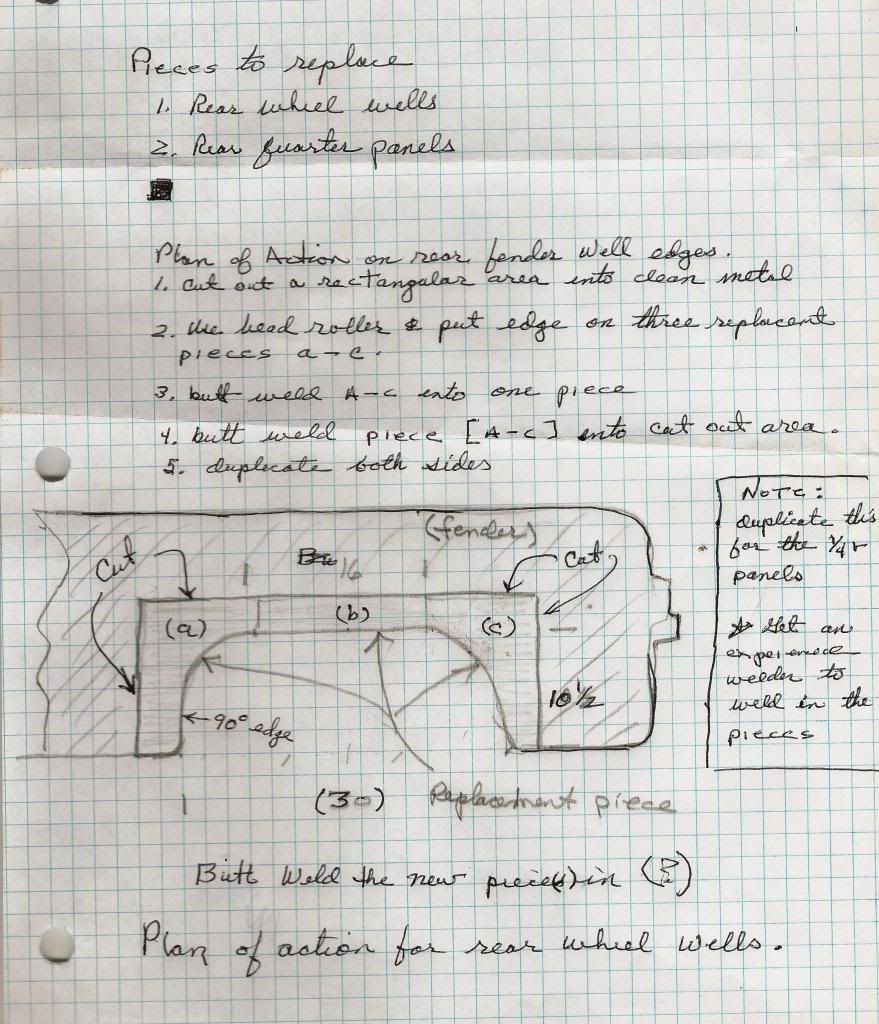 Pieces to replace
1. Rear wheel wells
2. Rear quarter panels
Plan of Action on rear fender well edges.
1. cut out a rectangular area into clean metal
2. Use bead roller & put edge on three replacent
pieces a-c.
3. butt weld A-c into one piece
4. butt weld piece [A-c] into cut out area.
5. duplicate both sides
NOTE:
duplicate this
for the 1/4r
panels
Get an
experience
welder to
weld in the
pieces
(fender)
Cut
16
Cut
(a)
(b)
(c)
10 1/2
90° edge
(30)
Replacement piece
Butt Weld the new piece(s) in
Plan of action for rear wheel wells.